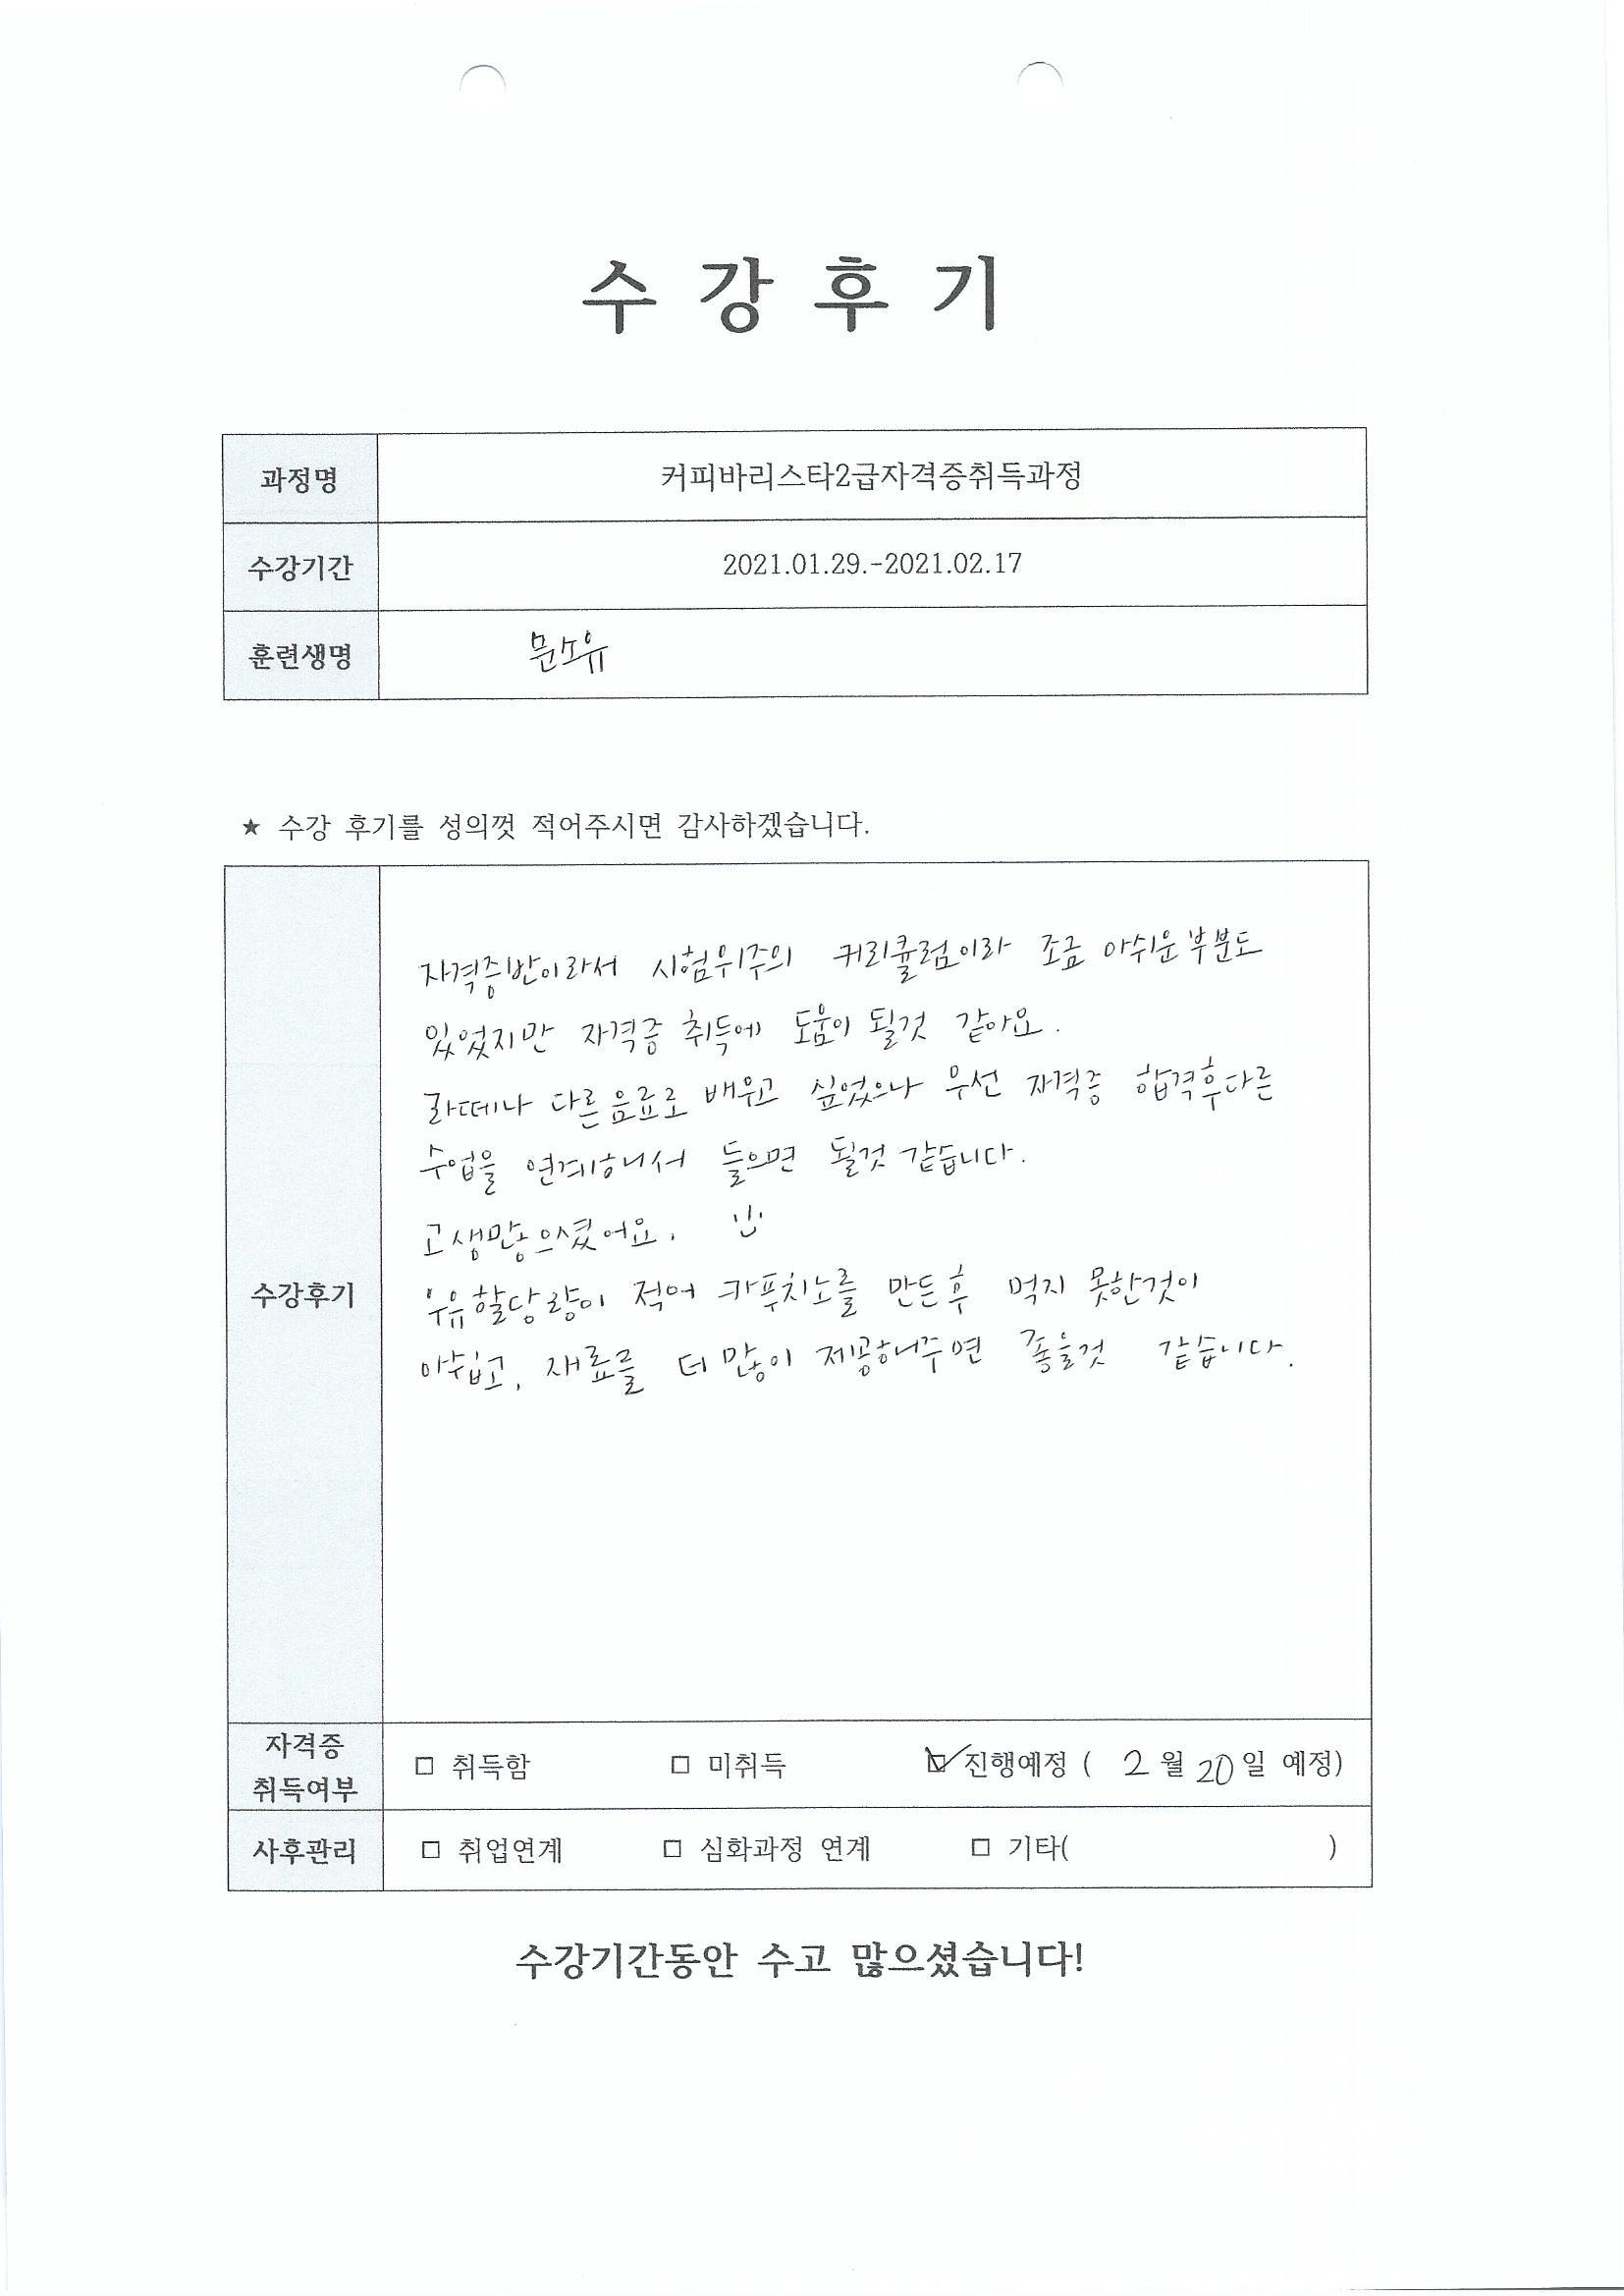 수 강 후 기
과정명 커피바리스타2급자격증취득과정
수강기간 2021.01.29.-2021.02.17
훈련생명 문소유
★ 수강 후기를 성의껏 적어주시면 감사하겠습니다.
수강후기
자격증반이라서 시험위주의 커리큘럼이라 조금 아쉬운 부분도
있었지만 자격증 취득에 도움이 될것 같아요.
라떼나 다른 음료로 배우고 싶었으나 우선 자격증 합격후 다른
수업을 연계해서 들으면 될것 같습니다.
고생많으셨어요.
우유할당량이 적어 카푸치노를 만든후 먹지 못한것이
아쉽고, 재료를 더 많이 제공해주면 좋을것 같습니다.
자격증
취득여부
□ 취득함 □ 미취득 ☑ 진행예정 ( 2월 20일 예정)
사후관리 □ 취업연계 □ 심화과정 연계 □ 기타( )
수강기간동안 수고 많으셨습니다!